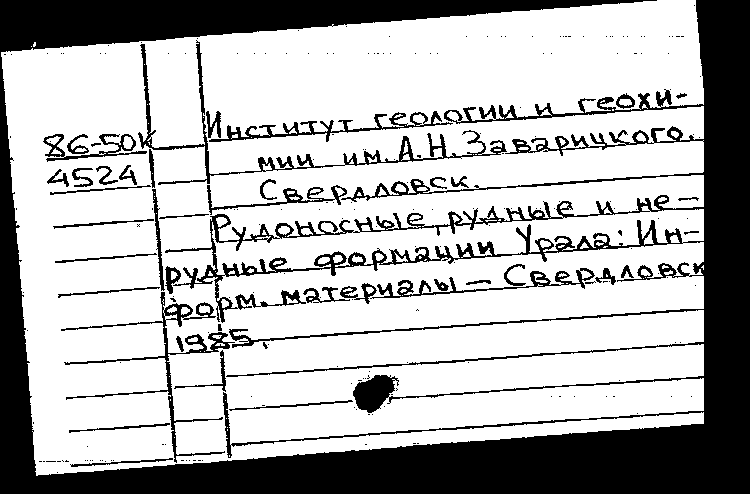 86-50К
4524
Институт геологии и геохи-
мии им. А.Н. Заварицкого.
Свердловск.
Рудоносные, рудные и не-
рудные формации Урала: Ин-
форм. материалы — Свердловск
1985.